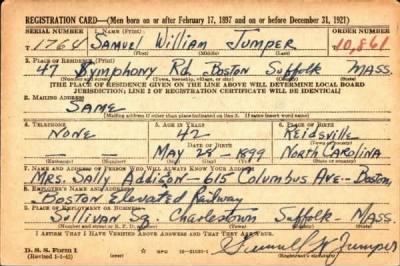 REGISTRATION CARD—(Men born on or after February 17, 1897 and on or before December 31, 1921)
SERIAL NUMBER 1. NAME (Print) ORDER NUMBER
1764 Samuel William Jumper 10,861
(First) (Middle) (Last)
3. PLACE OF RESIDENCE (Print)
47 Symphony Rd Boston Suffolk MASS.
(Number and street) (Town, township, village, or city) (County) (State)
[THE PLACE OF RESIDENCE GIVEN ON THE LINE ABOVE WILL DETERMINE LOCAL BOARD
JURISDICTION; LINE 2 OF REGISTRATION CERTIFICATE WILL BE IDENTICAL]
3. MAILING ADDRESS
SAME
[Mailing address if other than place indicated on line 2. If same insert word same]
4. TELEPHONE 5. AGE IN YEARS 6. PLACE OF BIRTH
NONE 42 Reidsville
DATE OF BIRTH (Town or county)
MAY 1899 NORTH CAROLINA
(Exchange) (Number) (Mo.) (Day) (Yr.) (State or country)
7. NAME AND ADDRESS OF PERSON WHO WILL ALWAYS KNOW YOUR ADDRESS
MRS. Sally Addison - 615 Columbus Ave - Boston,
8. EMPLOYER'S NAME AND ADDRESS
Boston Elevated Railway
9. PLACE OF EMPLOYMENT OR BUSINESS
Sullivan Sq. Charlestown Suffolk - MASS.
(Number and street or R. F. D. number) (Town) (County) (State)
I AFFIRM THAT I HAVE VERIFIED ABOVE ANSWERS AND THAT THEY ARE TRUE.
D. S. S. Form 1 GPO
(Revised 1-1-42) Samuel W Jumper